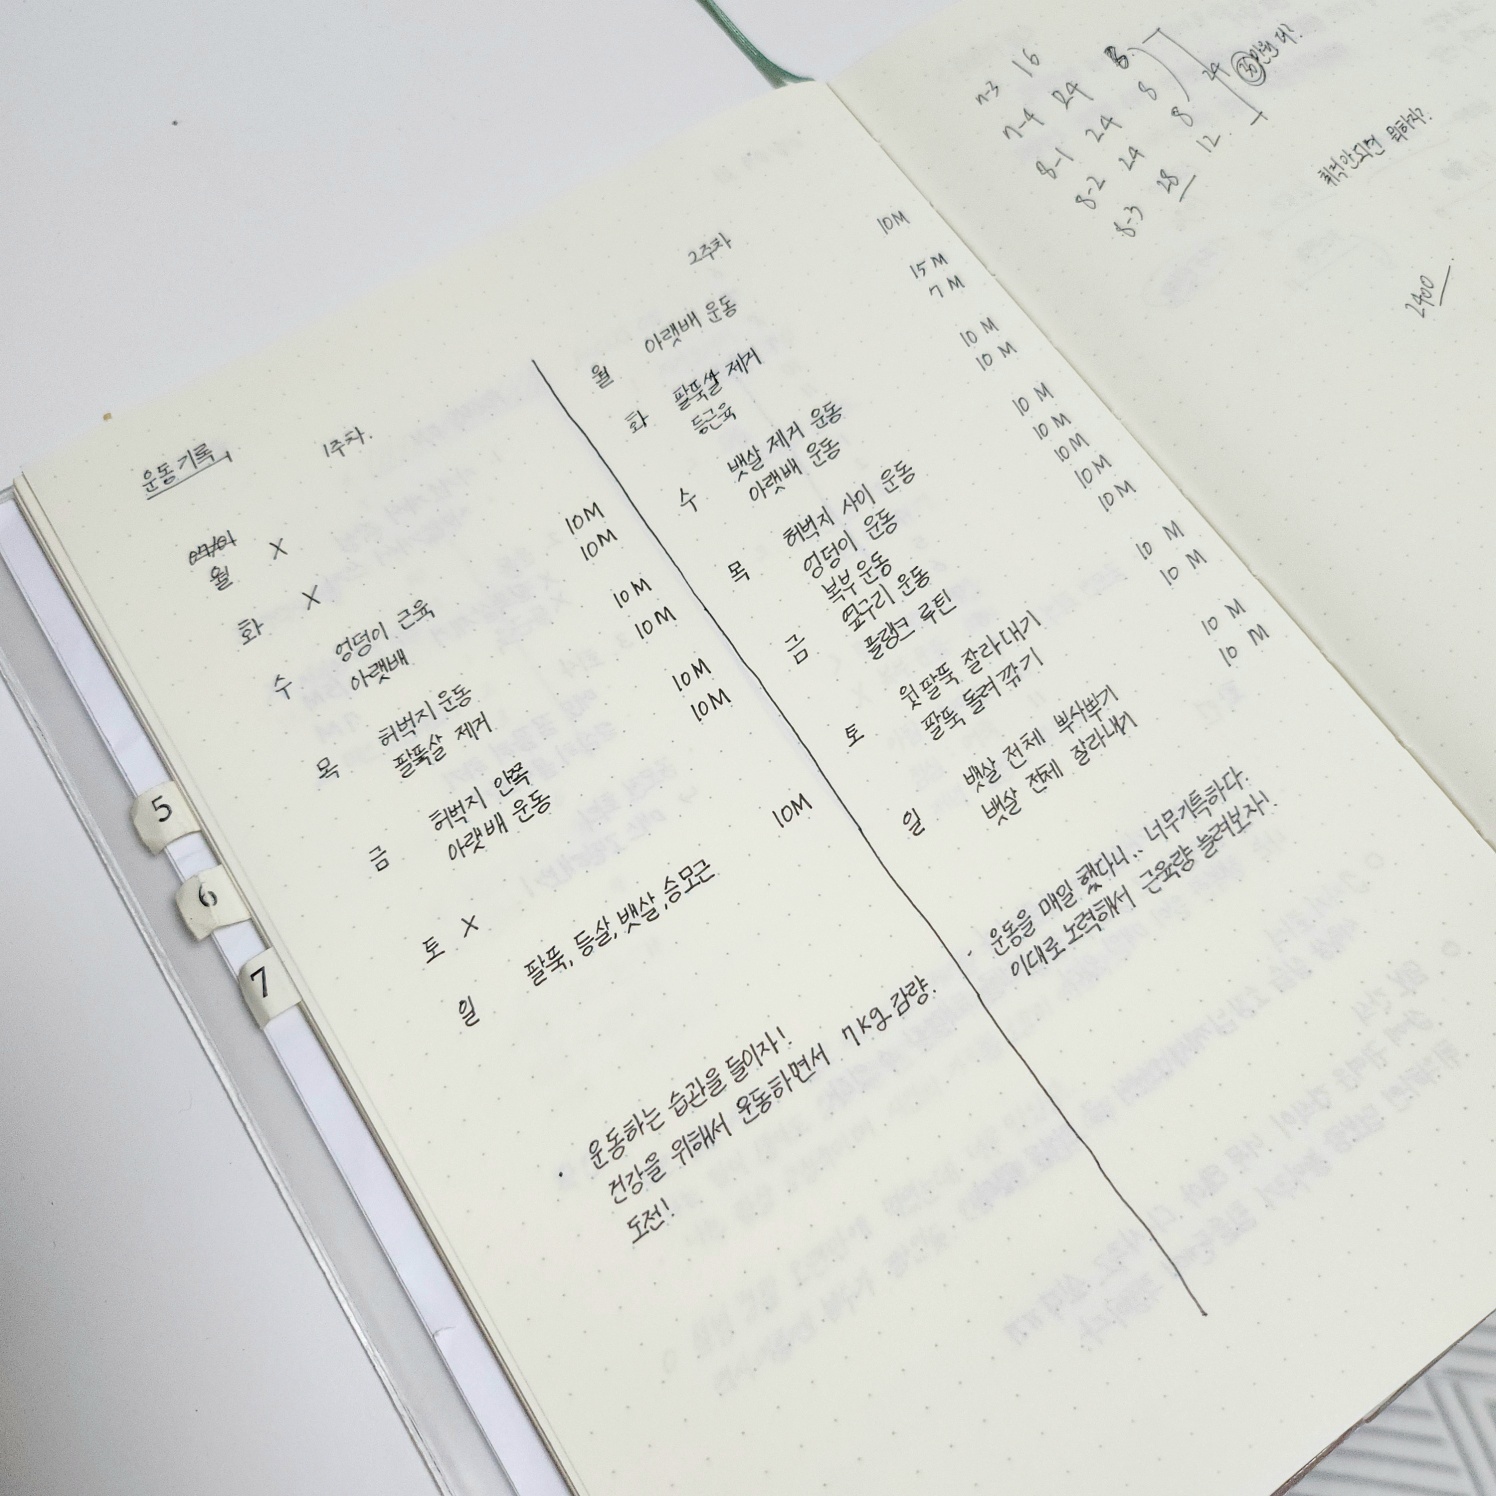 운동기록
1주차.
월 X
화 X
수 엉덩이 근육 10M
아랫배 10M
목 허벅지 운동 10M
팔뚝살 제거 10M
금 허벅지 안쪽 10M
아랫배 운동 10M
토 X
일 팔뚝, 등살, 뱃살, 승모근 10M
· 운동하는 습관을 들이자!
건강을 위해서 운동하면서 7kg 감량.
도전!
2주차
월 아랫배 운동 10M
화 팔뚝살 제거 15M
등근육 7M
수 뱃살 제거 운동 10M
아랫배 운동 10M
목 허벅지 사이 운동 10M
엉덩이 운동 10M
복부 운동 10M
금 옆구리 운동 10M
플랭크 루틴 10M
토 윗팔뚝 잘라내기 10M
팔뚝 돌려깎기 10M
일 뱃살 전체 뿌사뿌기 10M
뱃살 전체 잘라내기 10M
· 운동을 매일 했다니.. 너무기특하다.
이대로 노력해서 근육량 늘려보자!
7-3 16 8
7-4 24 8
8-1 24 8
8-2 24 12
8-3 28
24
취직안되면 뭐하지?
2400
5
6
7